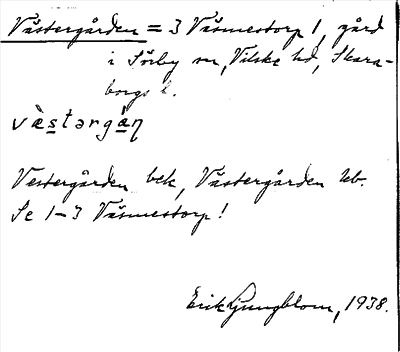 Västergården = 3 Väsmestorp 1, gård
i Sörby sn, Vilske hd, Skara-
borgs l.
væ̀stərgå̀ɳ
Vestergården bek, Västergården Ub.
Se 1–3 Väsmestorp!
Erik Ljungblom, 1938.